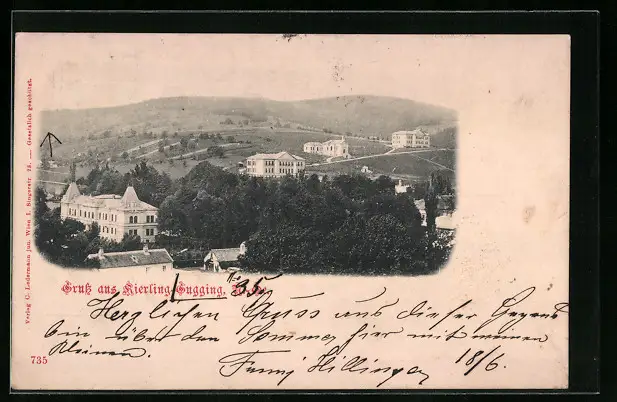 Verlag C. Ledermann jun. Wien I. Singerstr. 12. — Gesetzlich geschützt.
Gruß aus Kierling-Gugging,
Herzlichen Gruss aus dieser Gegend
bin über den Sommer hier mit meinen
Kleinen.
Fanny Hillinger 18/6.
735